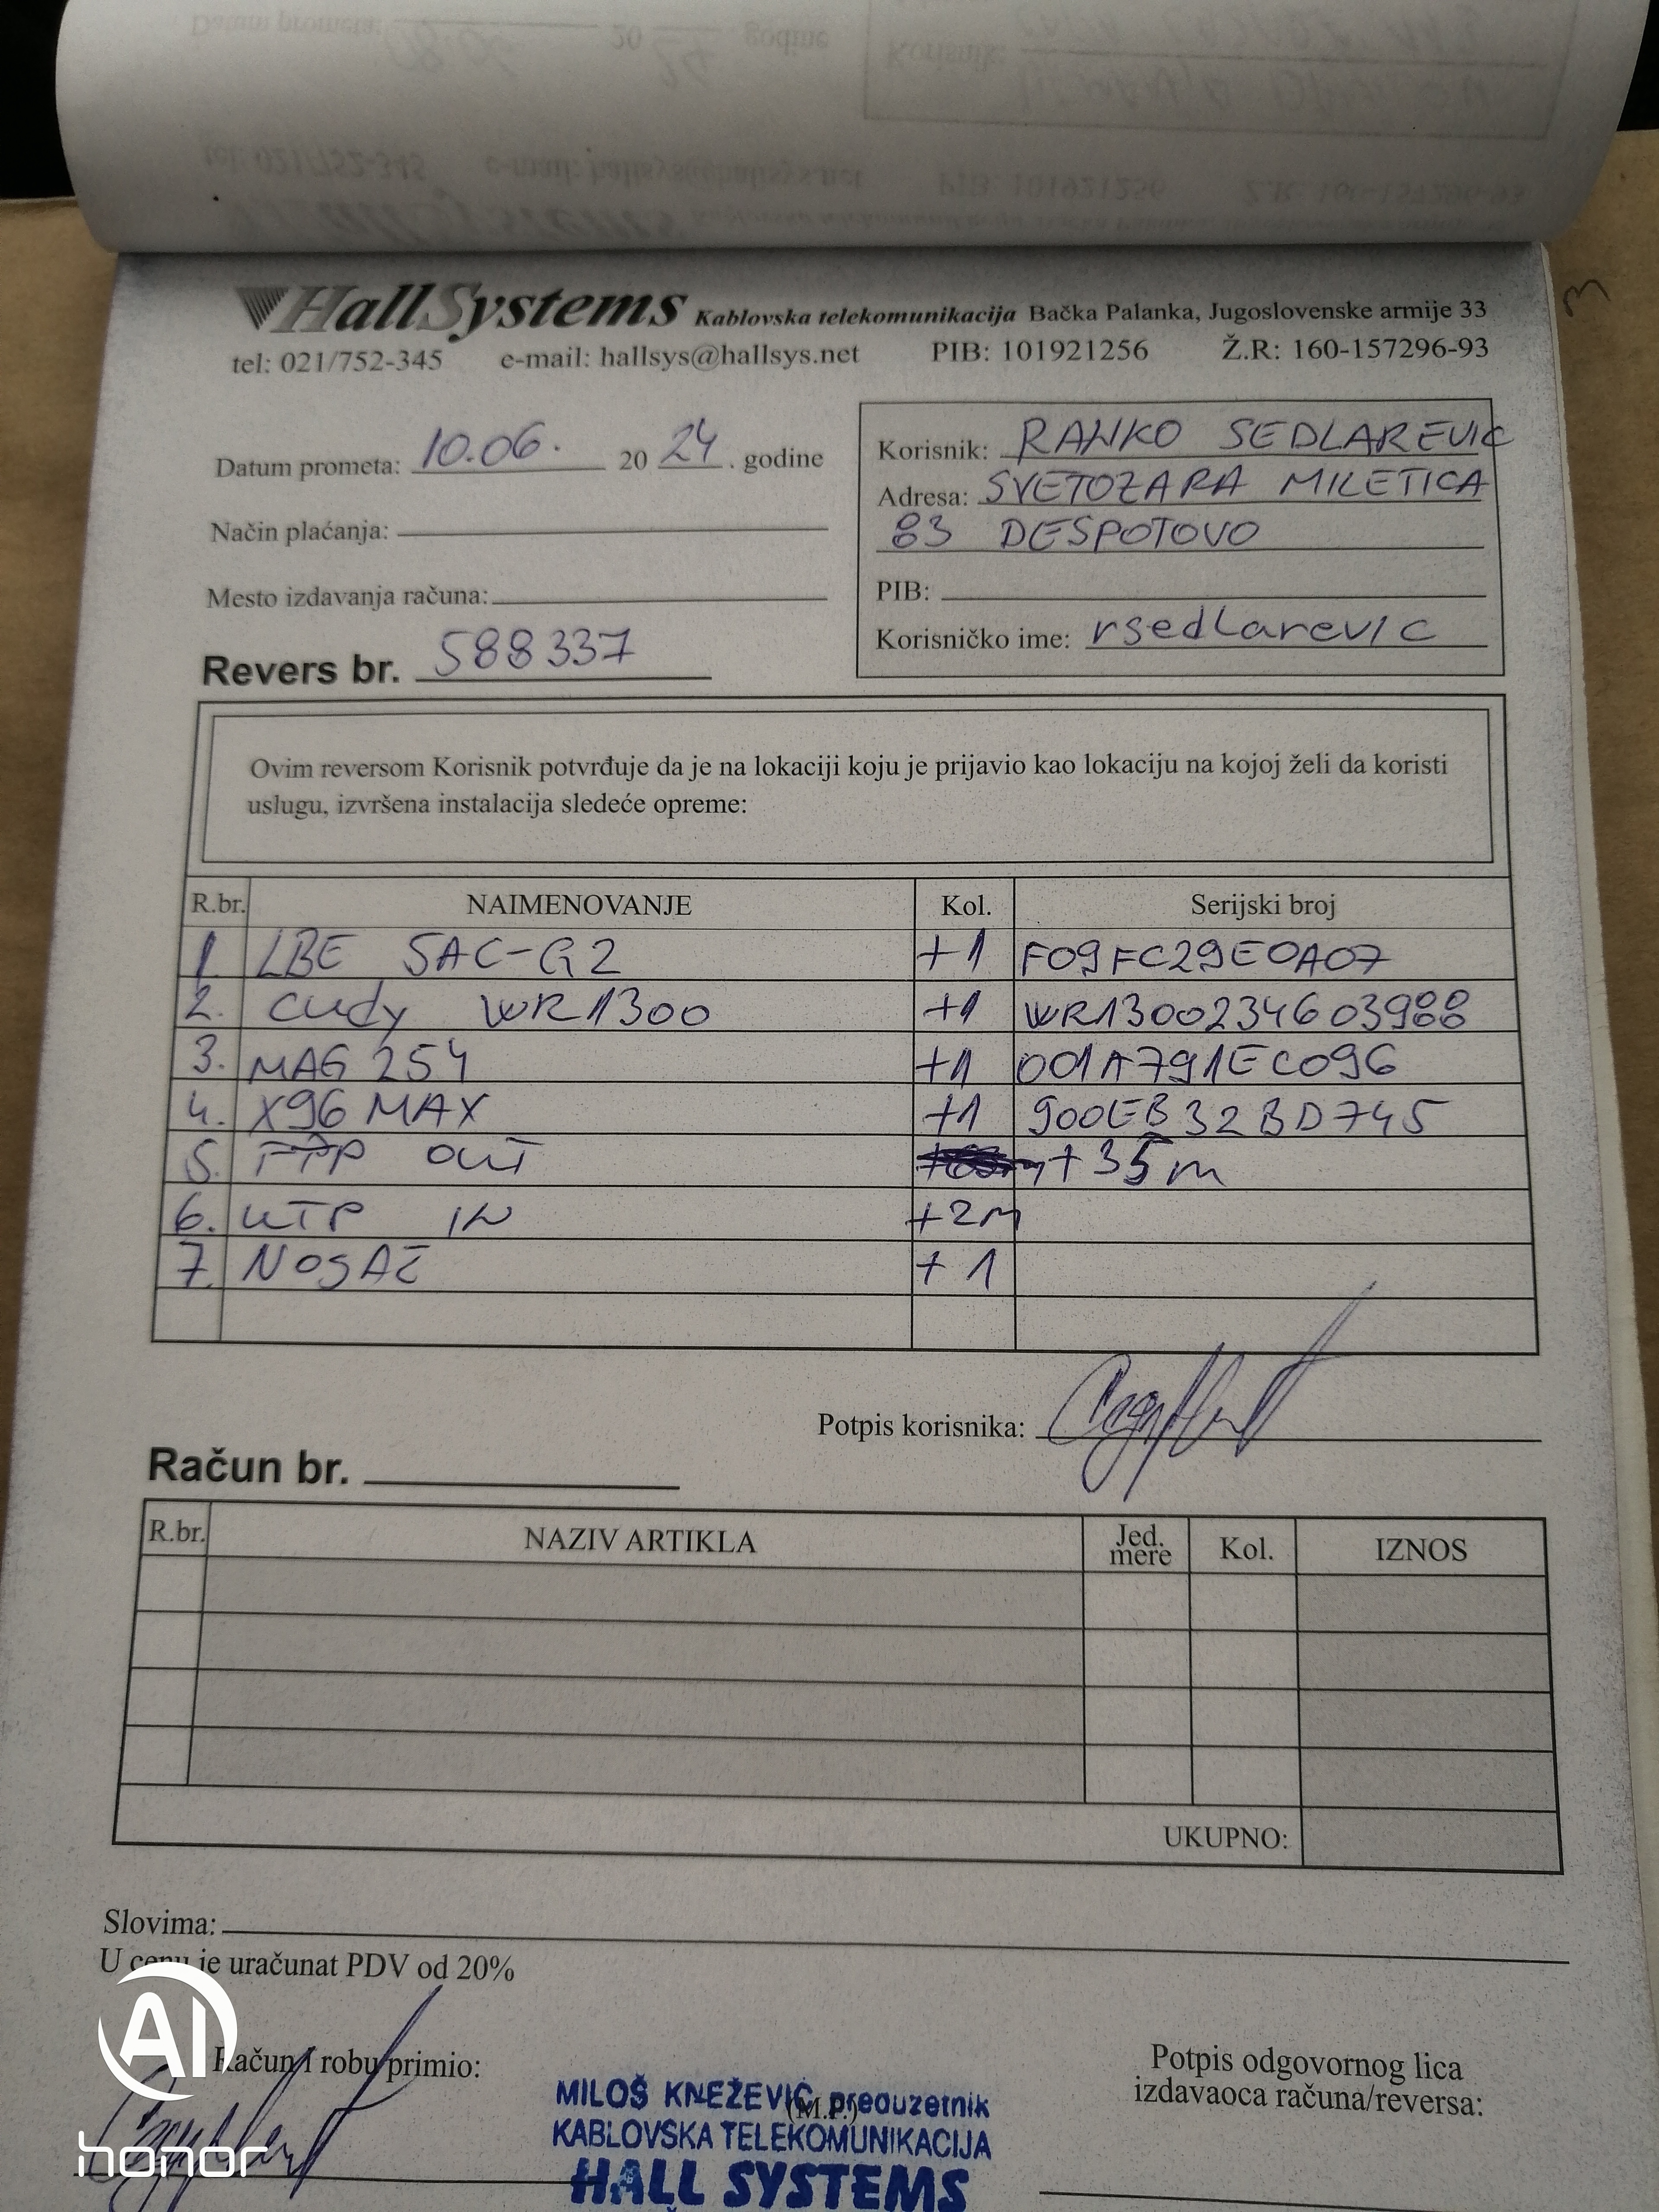 HallSystems Kablovska telekomunikacija Bačka Palanka, Jugoslovenske armije 33
tel: 021/752-345 e-mail: hallsys@hallsys.net PIB: 101921256 Ž.R: 160-157296-93
Datum prometa: 10.06. 20 24 . godine
Način plaćanja:
Mesto izdavanja računa:
Revers br. 588337
Korisnik: RANKO SEDLAREVIC
Adresa: SVETOZARA MILETICA
83 DESPOTOVO
PIB:
Korisničko ime: rsedlarevic
Ovim reversom Korisnik potvrđuje da je na lokaciji koju je prijavio kao lokaciju na kojoj želi da koristi
uslugu, izvršena instalacija sledeće opreme:
R.br. NAIMENOVANJE Kol. Serijski broj
1. LBE 5AC-G2 +1 F09FC29E0A07
2. cudy WR1300 +1 WR1300234603988
3. MAG 254 +1 001A791EC096
4. X96 MAX +1 900EB32BD745
5. FTP OUT +35m
6. UTP IN +2m
7. NOSAČ +1
Potpis korisnika:
Račun br.
R.br. NAZIV ARTIKLA Jed. mere Kol. IZNOS
UKUPNO:
Slovima:
U cenu je uračunat PDV od 20%
Račun i robu primio:
(M.P.)
Potpis odgovornog lica
izdavaoca računa/reversa:
MILOŠ KNEŽEVIĆ preduzetnik
KABLOVSKA TELEKOMUNIKACIJA
HALL SYSTEMS
AI
honor